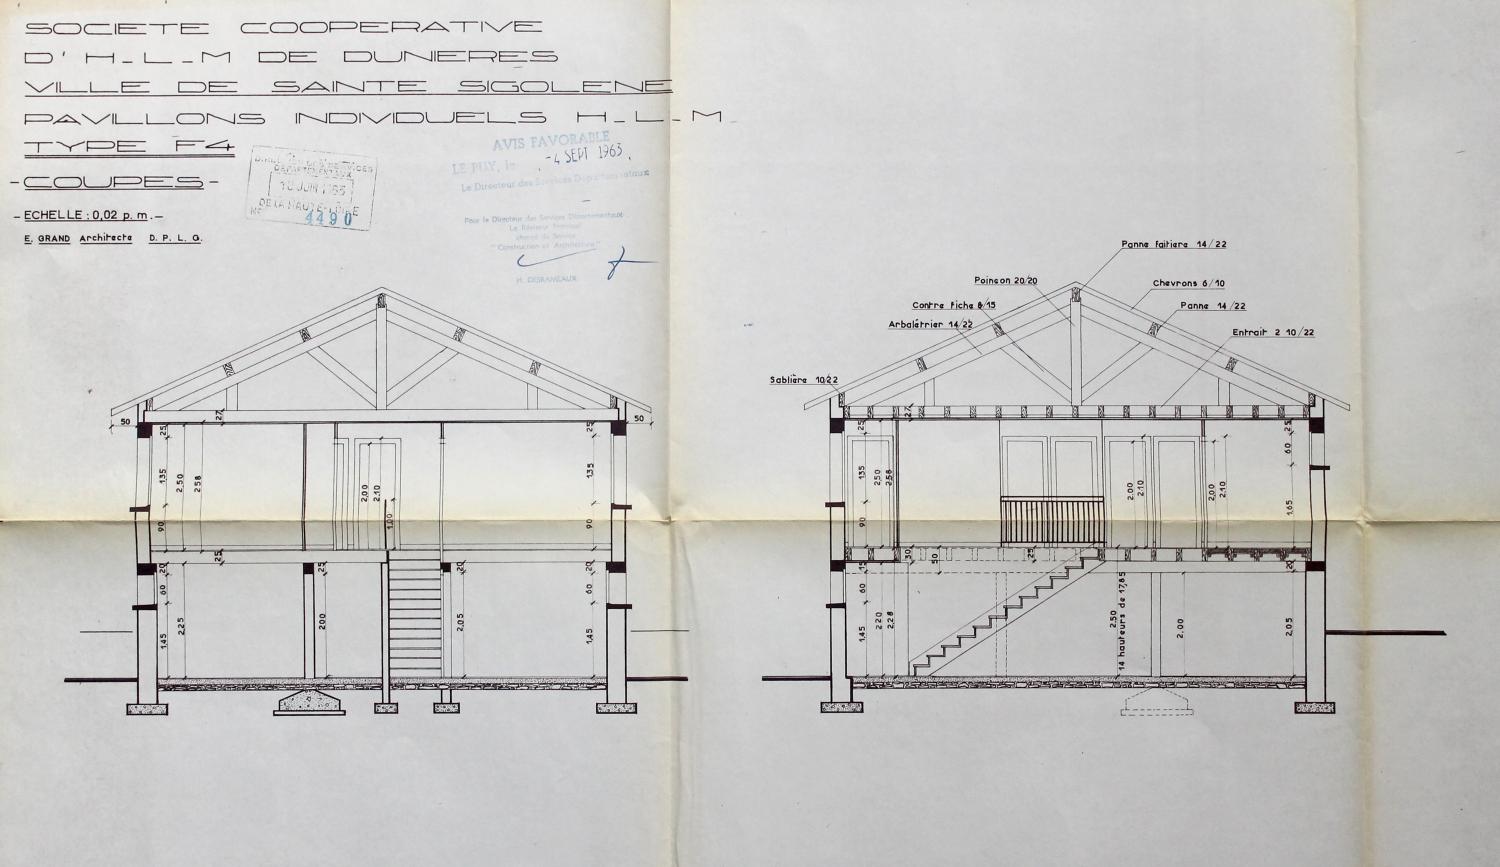 SOCIETE COOPERATIVE
D'H_L_M DE DUNIERES
VILLE DE SAINTE SIGOLENE
PAVILLONS INDIVIDUELS H_L_M
TYPE F4
-COUPES-
- ECHELLE : 0,02 p. m. -
E. GRAND Architecte D. P. L. G.
DEPARTEMENTAUX
10 JUIN 1963
DE LA HAUTE-LOIRE
N° 4490
AVIS FAVORABLE
LE PUY, le -4 SEPT 1963.
Le Directeur des Services Départementaux
Pour le Directeur des Services Départementaux
Le Réviseur Principal
chargé du Service
"Construction et Architecture"
H. DESRAMEAUX
Panne faitiere 14/22
Poinçon 20/20
Chevrons 6/10
Contre Fiche 8/15
Panne 14/22
Arbalétrier 14/22
Entrait 2 10/22
Sablière 10/22
50 27 50
25 25
135 2,50 2,58 2,00 2,10 135
90 1,00 90
25
20 25 20 20
60 60
1,45 2,25 2,00 2,05 1,45
27
25 25
135 2,50 2,58 2,00 2,10 2,00 2,10 60
90 1,65
30 50 25
15 20
60
1,45 2,20 2,28 2,50 14 hauteurs de 17,85 2,00 2,05